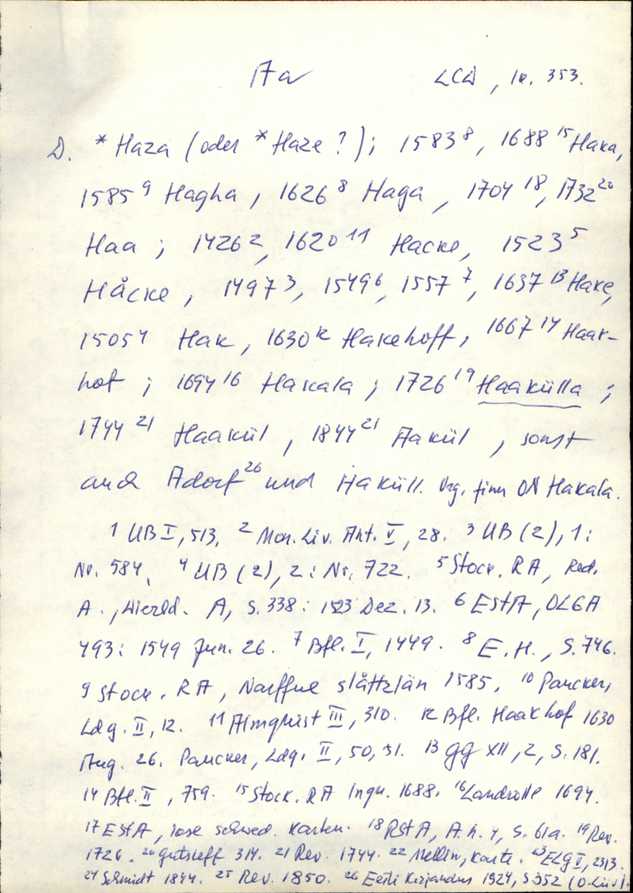 17a LCD, p. 353.
D. *Haza (oder *Haze?); 1583⁸, 1688¹⁵ Haka,
1585⁹ Hagha, 1626⁸ Haga, 1704¹⁸, 1732²⁰
Haa; 1426², 1620¹¹ Hacke, 1523⁵
Håcke, 1497³, 1549⁶, 1557⁷, 1637¹³ Hake,
1505⁴ Hak, 1630¹² Hakehoff, 1667¹⁴ Haak-
hof; 1694¹⁶ Hakala; 1726¹⁹ Haakülla;
1744²¹ Haakül, 1844²¹ Aakül, sonst
auch Adorf²⁶ und Haküll. Vg. finn ON Hakala.
1 UB I, 513. 2 Mon. Liv. Ant. V, 28. 3 UB (2), 1:
Nr. 584. 4 UB (2), 2: Nr. 722. 5 Stock. RA, Red.
A., Wierld. A, S. 338: 1523 Dez. 13. 6 EstA, OLGA
493: 1549 Jun. 26. 7 Bfl. I, 1449. 8 E.H., S. 746.
9 Stock. RA, Narffue slåttzlän 1585. 10 Paucker,
Ldg. II, 12. 11 Almquist III, 310. 12 Bfl. Haakhof 1630
Aug. 26. Paucker, Ldg. II, 50, 51. 13 GG XII, 2, S. 181.
14 Bfl. II, 759. 15 Stock. RA Ingr. 1688. 16 Landrolle 1694.
17 EstA, lose schwed. Karten. 18 RStA, A.h. 4, S. 61a. 19 Rev.
1726. 20 Gutsleff 314. 21 Rev. 1744. 22 Mellin, Karte. 23 ELG I, 2513.
24 Schmidt 1844. 25 Rev. 1850. 26 Eesti Kirjandus 1924, S. 352